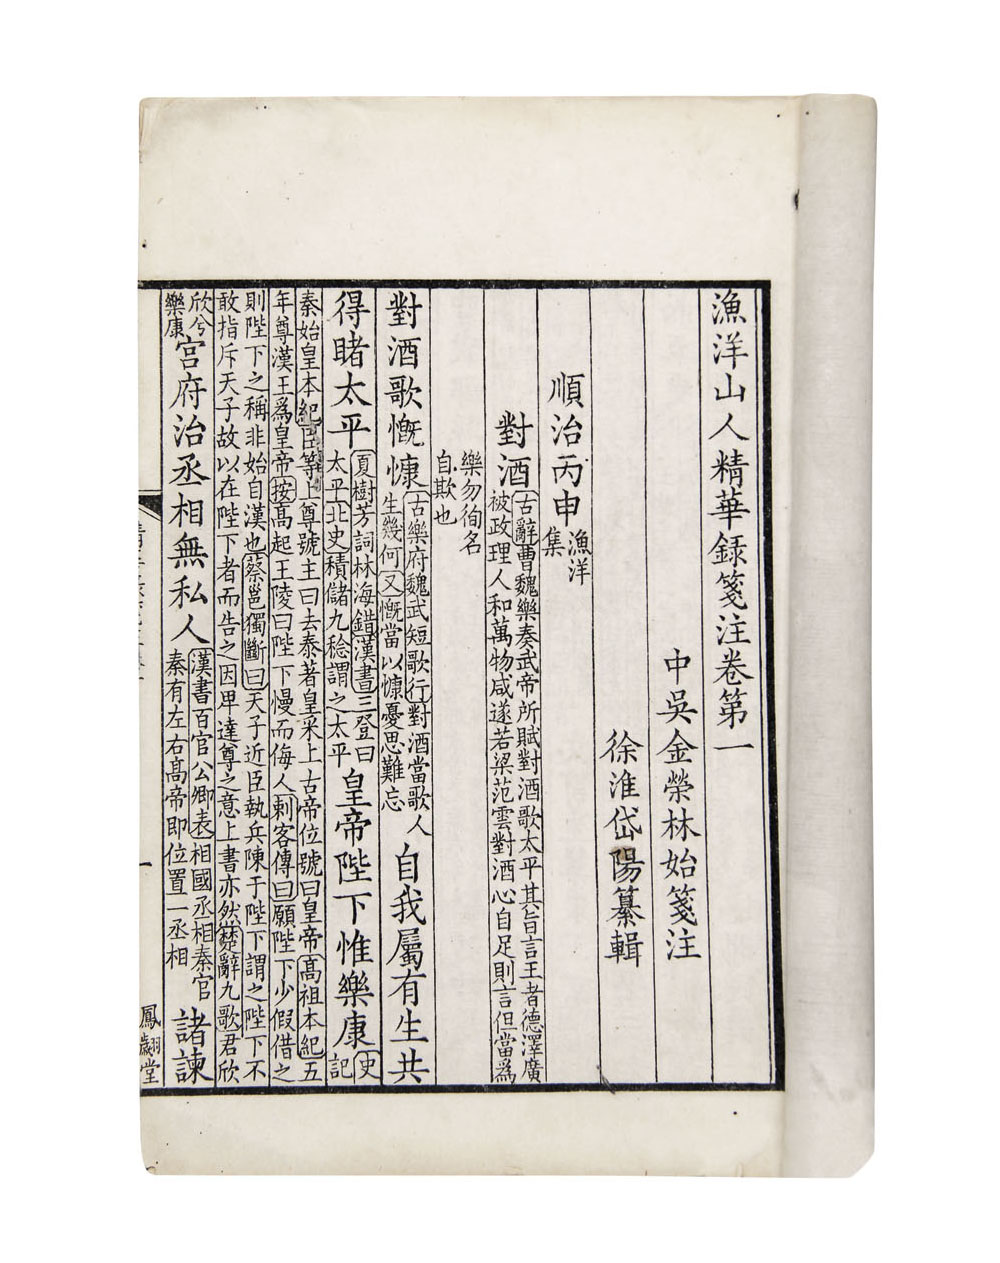 漁洋山人精華録箋注卷第一
中吳金榮林始箋注
徐淮岱陽纂輯
順治丙申漁洋集
對酒古辭曹魏樂奏武帝所賦對酒歌太平其旨言王者德澤廣
被政理人和萬物咸遂若梁范雲對酒心自足則言但當爲
樂勿徇名
自欺也
對酒歌慨慷古樂府魏武短歌行對酒當歌人
生幾何又慨當以慷憂思難忘自我屬有生共
得睹太平夏樹芳詞林海錯漢書三登曰
太平北史積儲九稔謂之太平皇帝陛下惟樂康史
記
秦始皇本紀臣等上尊號主曰去泰著皇采上古帝位號曰皇帝高祖本紀五
年尊漢王爲皇帝按高起王陵曰陛下慢而侮人刺客傳曰願陛下少假借之
則陛下之稱非始自漢也蔡邕獨斷曰天子近臣執兵陳于陛下謂之陛下不
敢指斥天子故以在陛下者而告之因卑達尊之意上書亦然楚辭九歌君欣
欣兮
樂康宮府治丞相無私人漢書百官公卿表相國丞相秦官
秦有左右高帝即位置一丞相諸諫
一
鳳翽堂